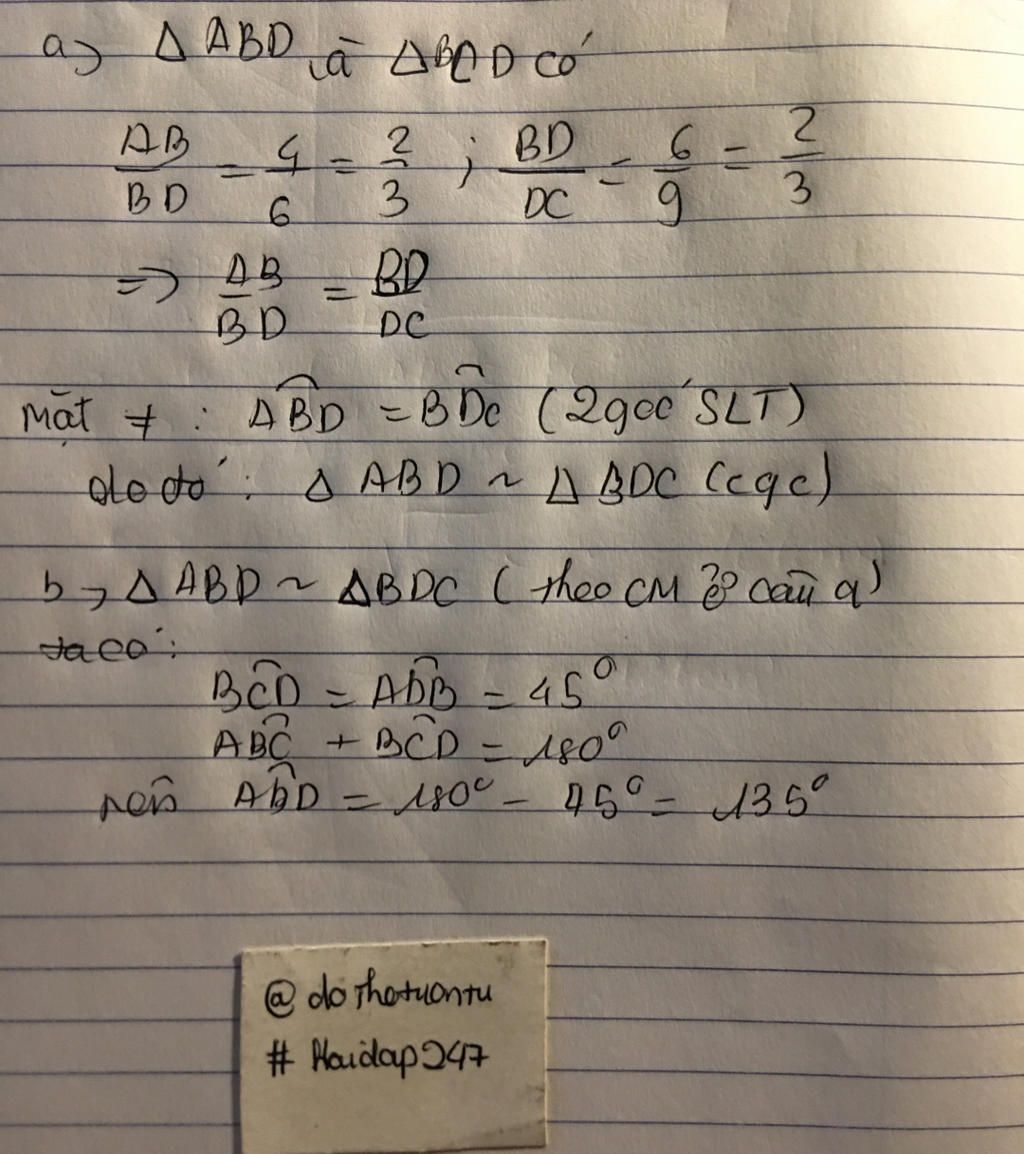 a) Δ ABD và Δ BCD có
AB/BD = 4/6 = 2/3 ; BD/DC = 6/9 = 2/3
=> AB/BD = BD/DC
Mặt ≠ : AB̂D = BD̂C (2 góc SLT)
do đó : Δ ABD ~ Δ BDC (cgc)
b, Δ ABD ~ Δ BDC ( theo CM ở câu a)
ta có :
BĈD = AD̂B = 45°
AB̂C + BĈD = 180°
nên Ab̂D = 180° - 45° = 135°
@ dothetuontu
# Hoidap247